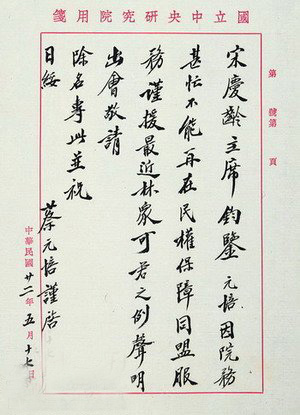 國立中央研究院用箋
第　號第　頁
宋慶齡主席鈞鑒元培因院務
甚忙不能再在民權保障同盟服
務謹援最近林衆可君之例聲明
出會敬請
除名專此並祝
日綏
蔡元培謹啓
中華民國廿二年五月十七日